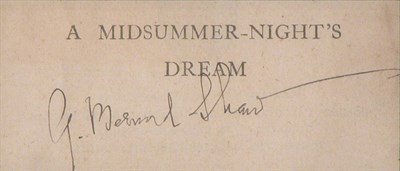 A MIDSUMMER-NIGHT'S
DREAM
G. Bernard Shaw